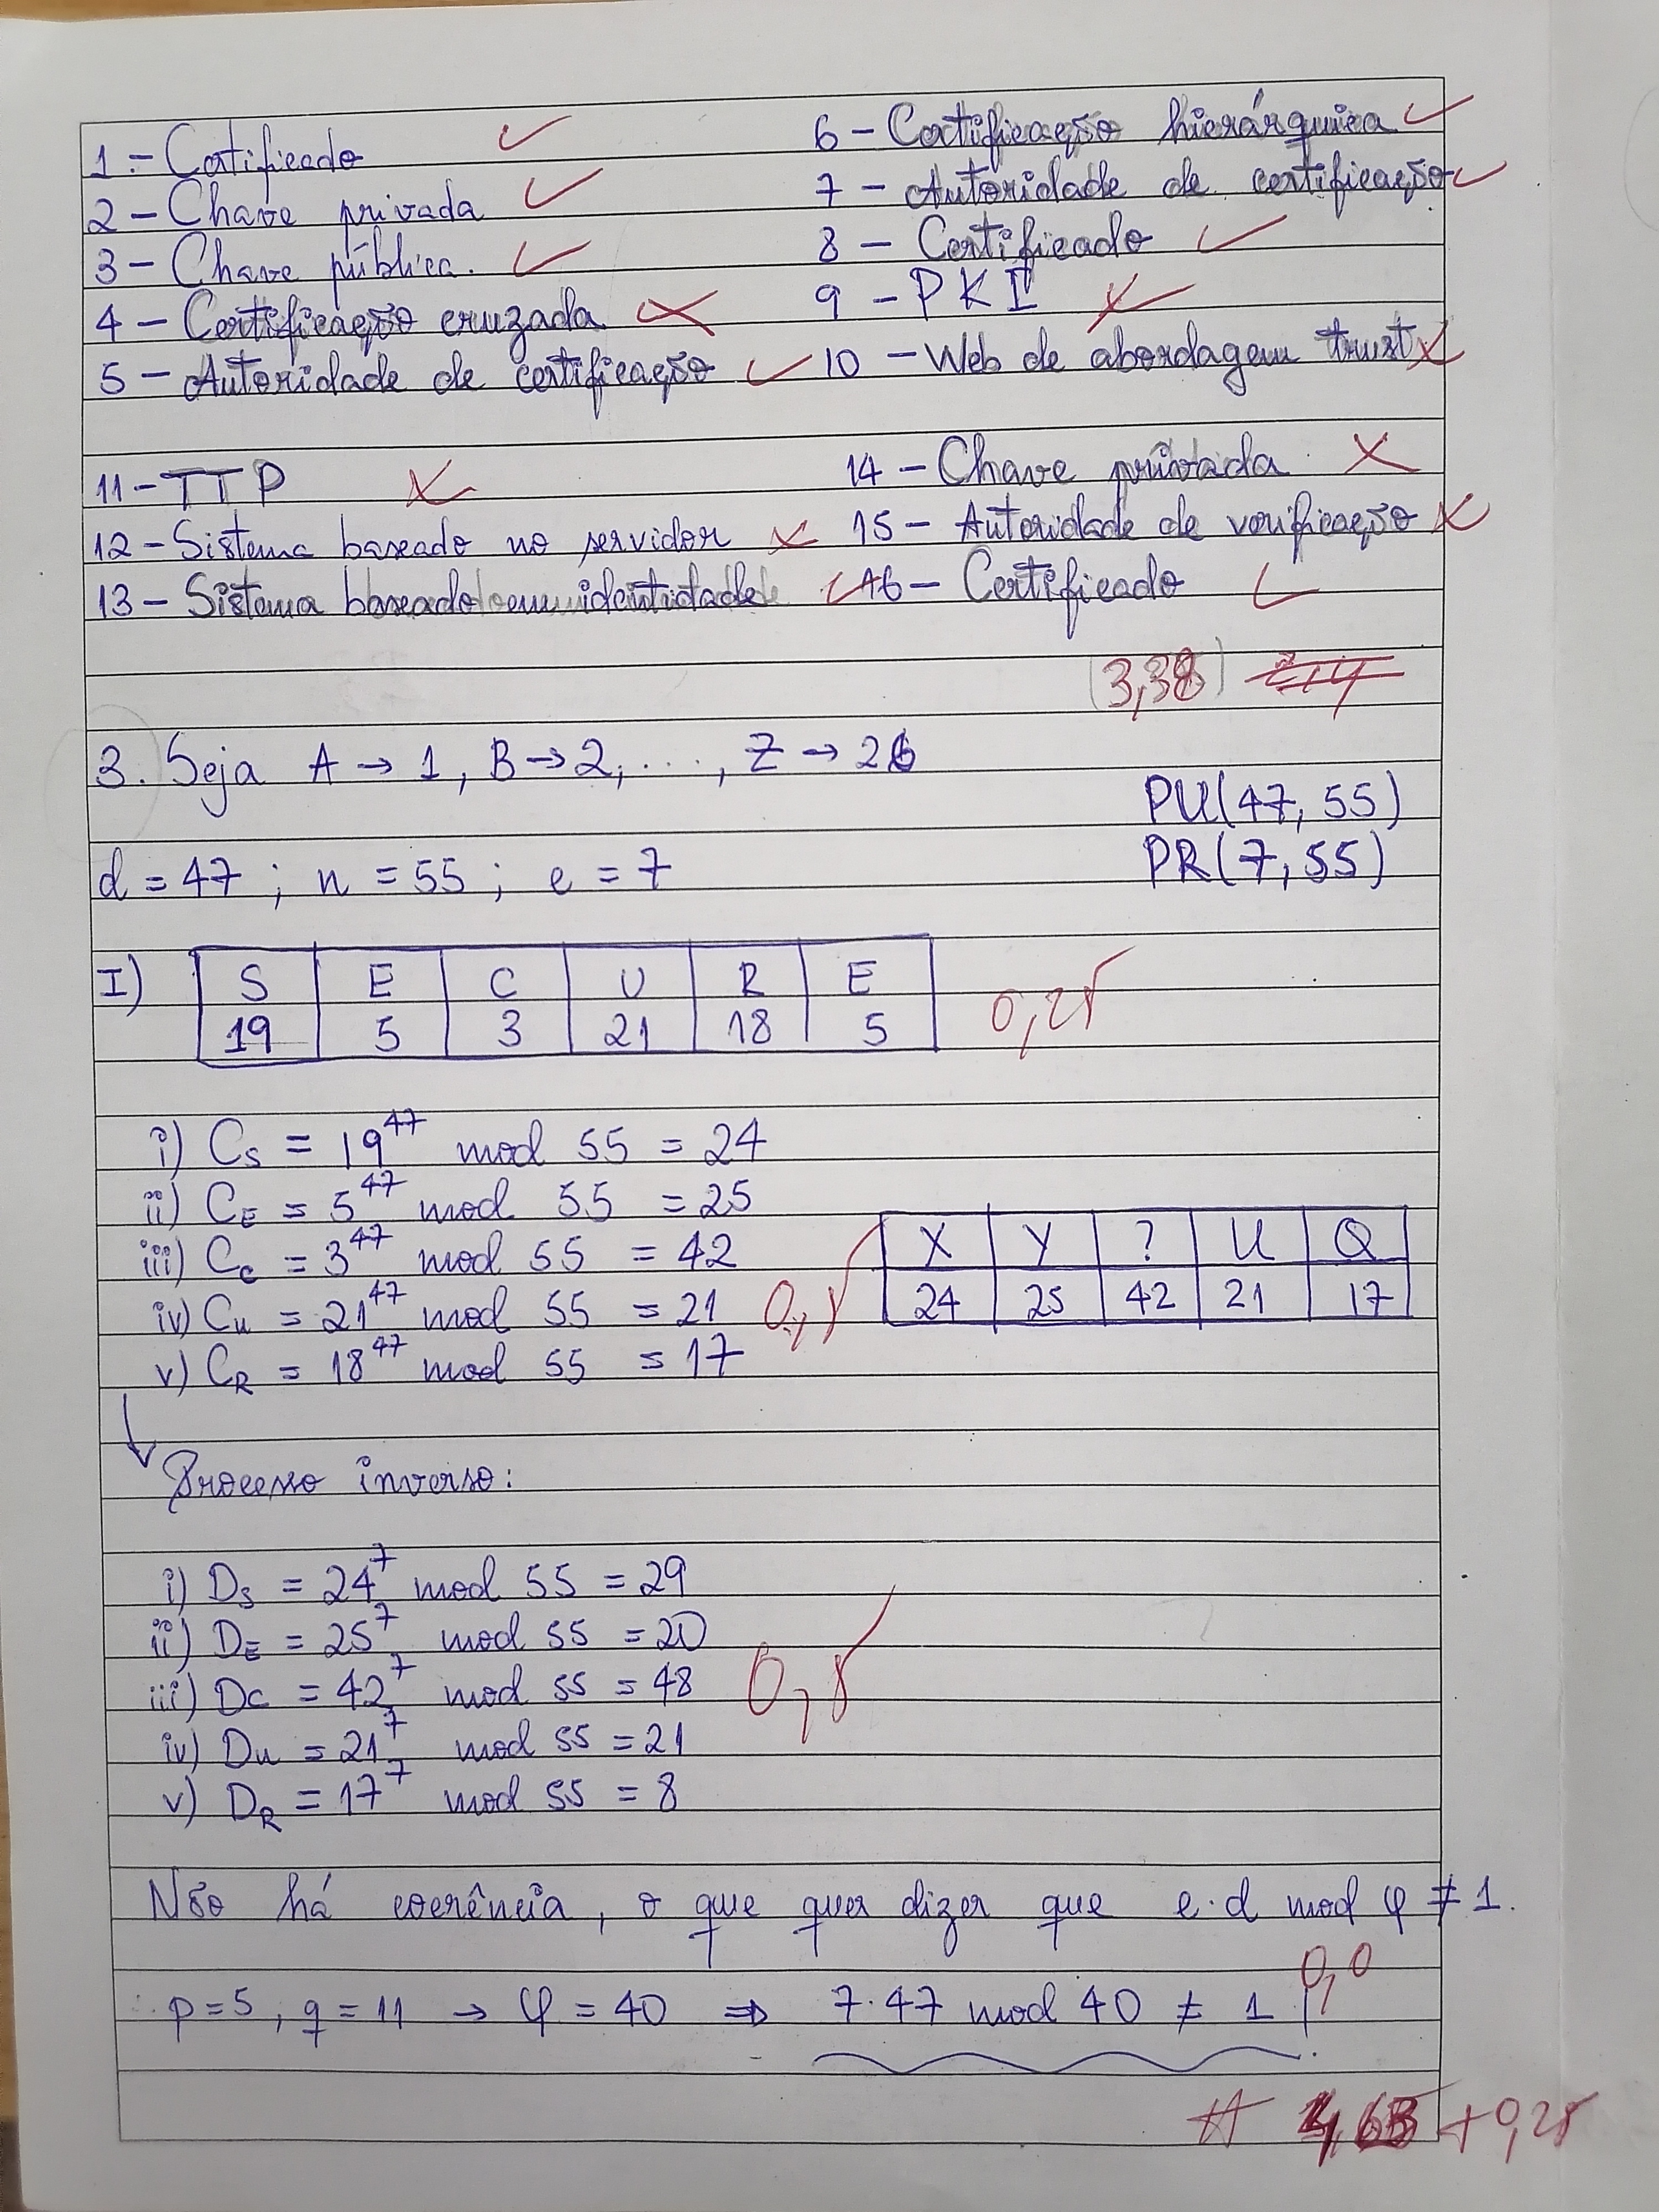 1 - Certificado
2 - Chave privada
3 - Chave pública.
4 - Certificação cruzada
5 - Autoridade de certificação
6 - Certificação hierárquica
7 - Autoridade de certificação
8 - Certificado
9 - PKI
10 - Web de abordagem trust
11 - TTP
12 - Sistema baseado no servidor
13 - Sistema baseado em identidade
14 - Chave privada
15 - Autoridade de verificação
16 - Certificado
(3,38)
3. Seja A → 1, B → 2, ..., Z → 26
PU(47, 55)
PR(7, 55)
d = 47 ; n = 55 ; e = 7
I) S E C U R E
19 5 3 21 18 5
0,25
i) C_S = 19^47 mod 55 = 24
ii) C_E = 5^47 mod 55 = 25
iii) C_C = 3^47 mod 55 = 42
iv) C_U = 21^47 mod 55 = 21
v) C_R = 18^47 mod 55 = 17
X Y ? U Q
24 25 42 21 17
Processo inverso:
i) D_S = 24^7 mod 55 = 29
ii) D_E = 25^7 mod 55 = 20
iii) D_C = 42^7 mod 55 = 48
iv) D_U = 21^7 mod 55 = 21
v) D_R = 17^7 mod 55 = 8
Não há coerência, o que quer dizer que e.d mod φ ≠ 1.
∴ p = 5, q = 11 → φ = 40 ⇒ 7.47 mod 40 ≠ 1
0,0
+ 0,25